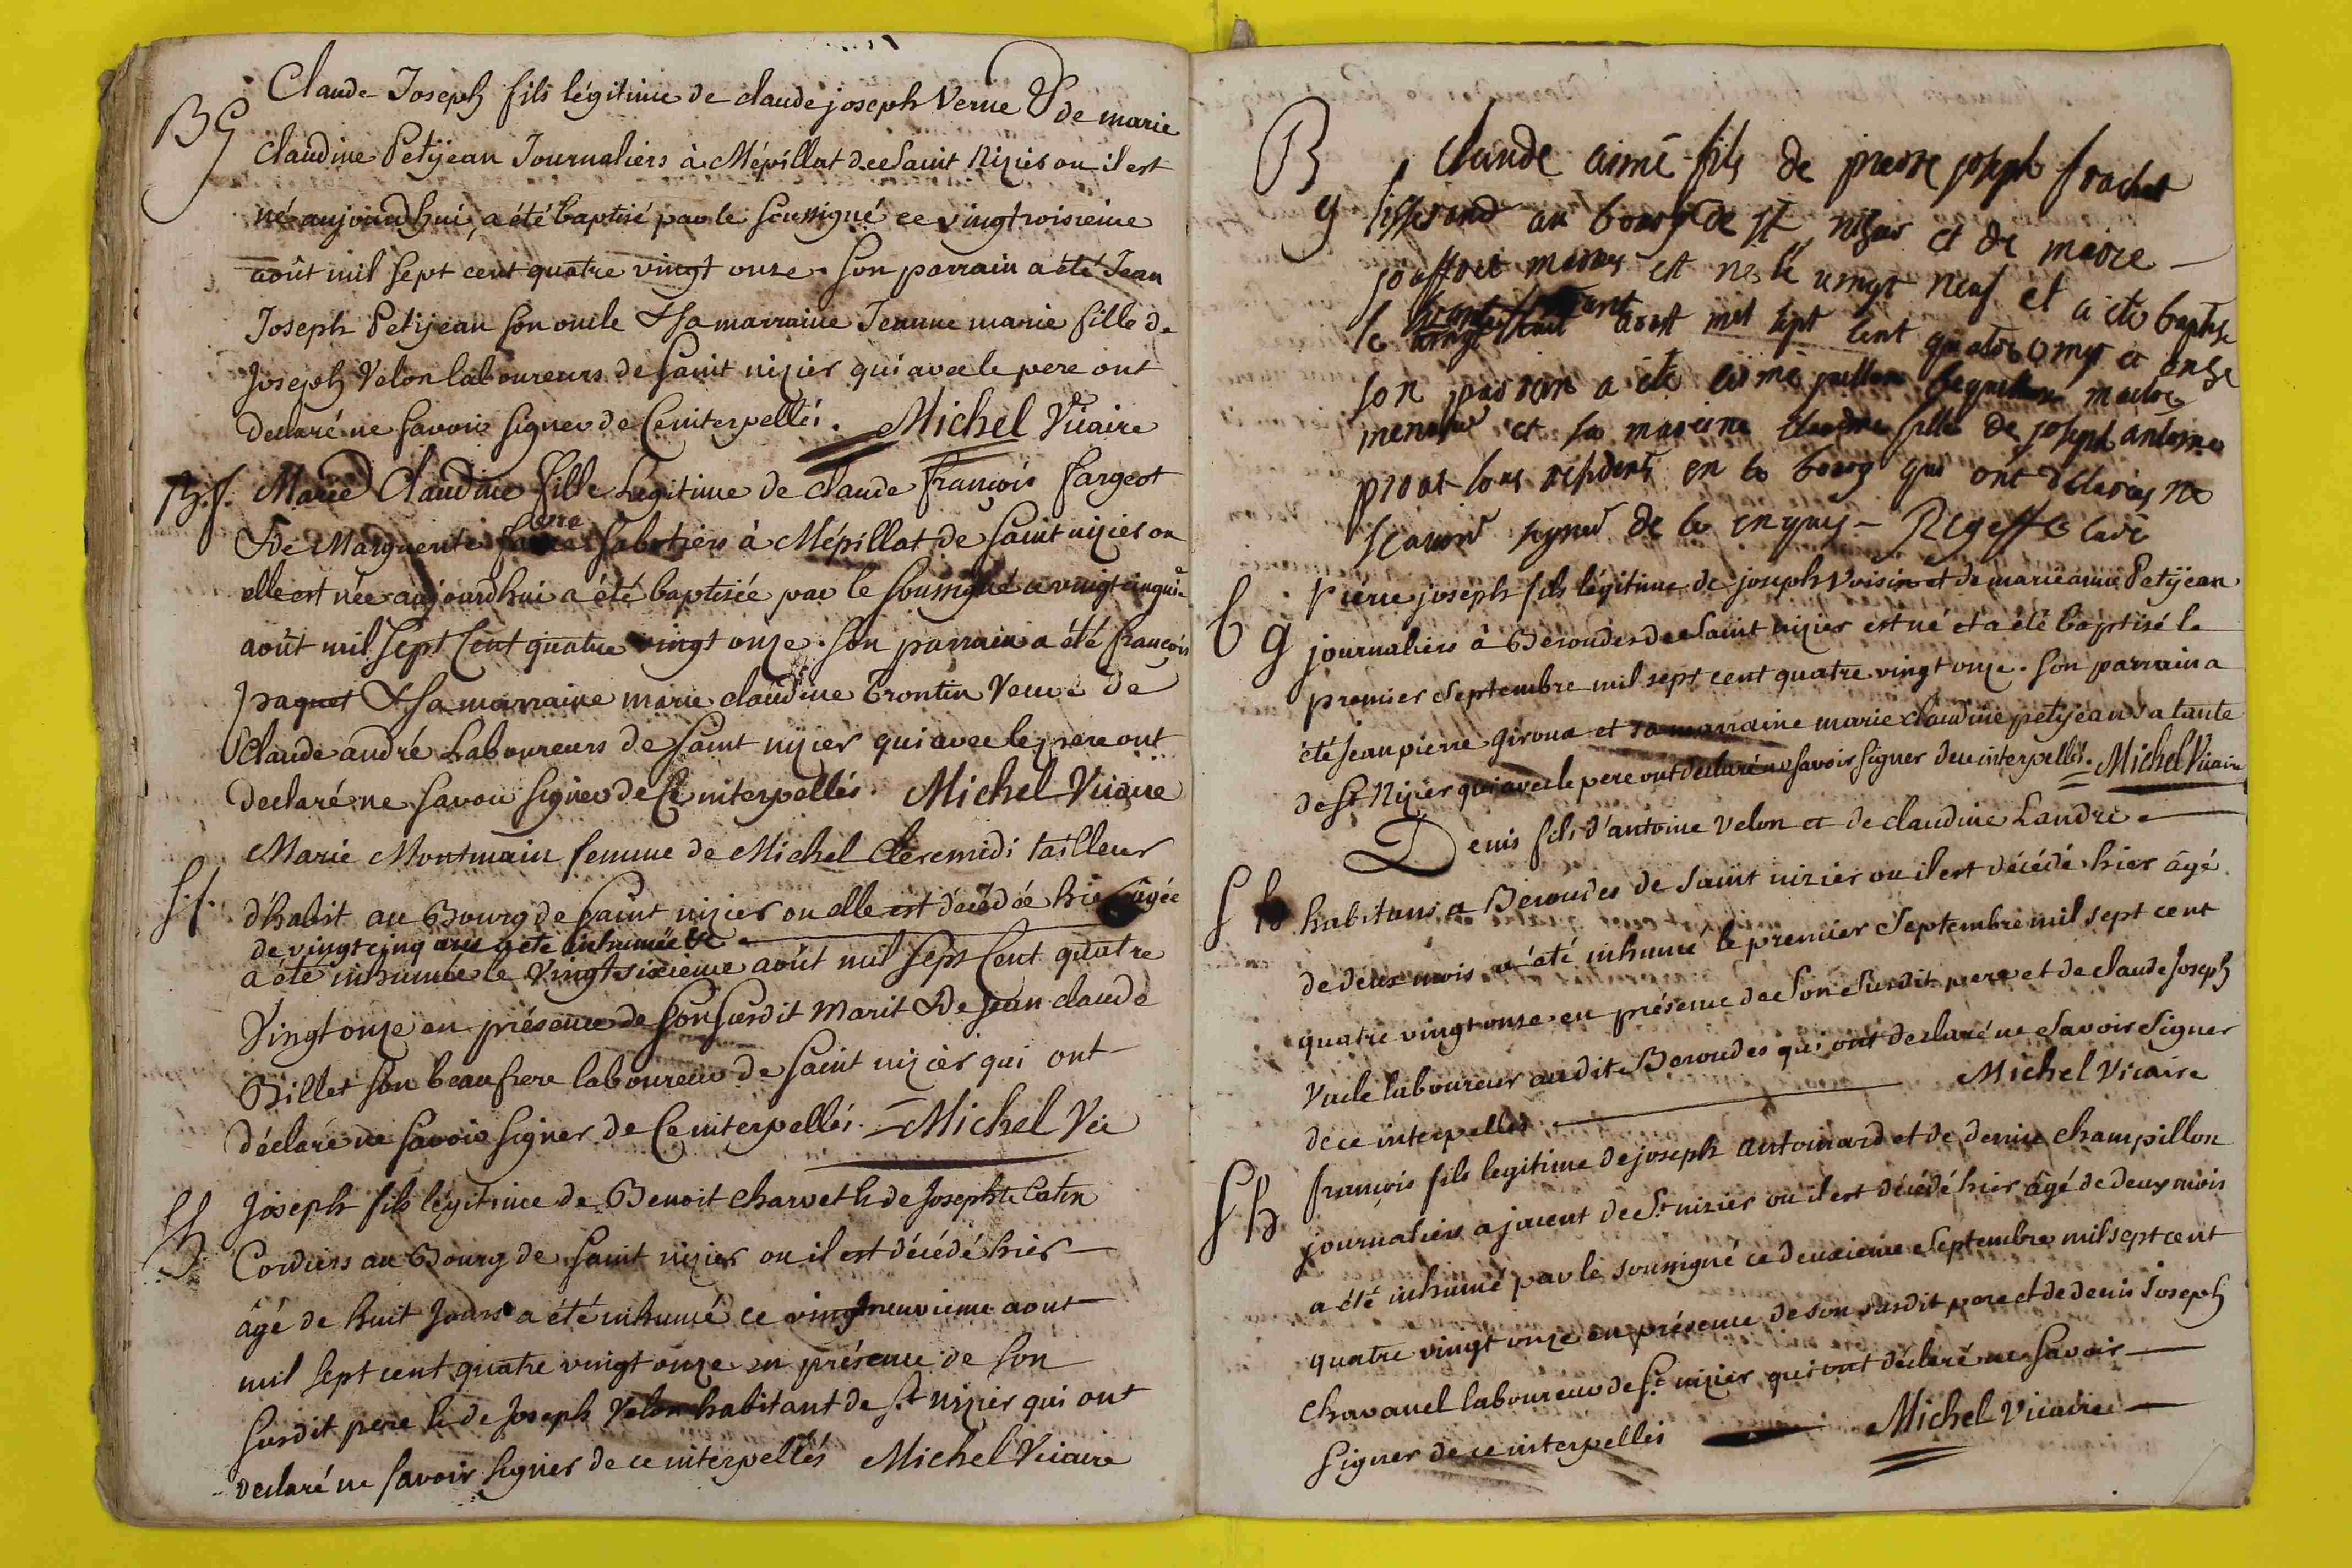 BG
Claude Joseph fils légitime de claude joseph Verne & de marie
claudine Petijean Journaliers à Mépillat de Saint Nizier ou il est
né aujourdhui, a été baptisé par le soussigné ce vingt troisieme
août mil sept cent quatre vingt onze. Son parrain a été Jean
Joseph Petijean son oncle & sa marraine Jeanne marie fille de
Joseph Velon laboureurs de Saint nizier qui avec le pere ont
declaré ne savoir signer de Ce interpellés. Michel Vicaire
B.f. Marie Claudine fille Legitime de claude françois fargeot
& de Marguerite sabotiers à Mépillat de Saint nizier ou
elle est née aujourdhui a été baptisée par le soussigné ce vingt cinquie
août mil sept Cent quatre vingt onze. Son parrain a été françois
paquet & sa marraine marie claudine brontin Veuve de
Claude andré Laboureurs de Saint nizier qui avec le pere ont
declaré ne savoir signer de Ce interpellés. Michel Vicaire
Marie Montmain femme de Michel Cleremidi tailleur
S.f. d'habit au Bourg de Saint nizier ou elle est décédée hier âgée
de vingt cinq ans a été inhumée &
a été inhumée le Vingt sixieme août mil sept Cent quatre
Vingt onze en présence de Son susdit Marit & De Jean claude
Billet son beaufrere laboureur de Saint nizier qui ont
déclaré ne savoir signer de Ce interpellés. Michel Vic
Joseph fils légitime de Benoit charvet & de Josephte Catin
Sh. Cordiers au Bourg de Saint nizier ou il est décédé hier
âgé de huit Jours a été inhumé ce vingt neuvieme aout
mil sept cent quatre vingt onze en présence de Son
susdit pere & de Joseph Velon habitant de St nizier qui ont
declaré ne savoir signer de ce interpellés Michel Vicaire
B
claude aimé fils de pierre joseph frachet
g tisserand au bourg de st nizier et de marie
jouffret maries est ne le vingt neuf et a ete baptise
le aoust mil sept cent quatre vingt et onze
son parrain a ete aimé maitre
menusier et sa mareine claudine fille de joseph antoine
proat tous residents en ce bourg qui ont declares ne
scavoir signer de ce enquis - Regeffe curé
Pierre joseph fils légitime de joseph Voisin et de marie anne Petijean
b g journaliers à Beroudes de Saint nizier est né et a été baptisé le
premier Septembre mil sept cent quatre vingt onze. Son parrain a
été Jean pierre giroud et sa marraine marie claudine petijean sa tante
de St Nizier qui avec le pere ont declaré ne savoir signer de ce interpellés. Michel Vicaire
Denis fils d'antoine velon et de claudine Landre
S h habitans a Beroudes de Saint nizier ou il est décédé hier âgé
de deux mois a été inhumé le premier Septembre mil sept cent
quatre vingt onze en présence de Son Susdit pere et de claude Joseph
Vuile laboureur au dit Beroudes qui ont declaré ne Savoir Signer
de ce interpellés Michel Vicaire
françois fils legitime de joseph antoinard et de denise champillon
S h journaliers a jacent de St nizier ou il est décédé hier âgé de deux mois
a été inhumé par le soussigné ce deuxieme Septembre mil sept cent
quatre vingt onze en présence de son susdit pere et de denis Joseph
chavanel laboureur de St nizier qui ont déclaré ne Savoir
Signer de ce interpellés Michel Vicaire